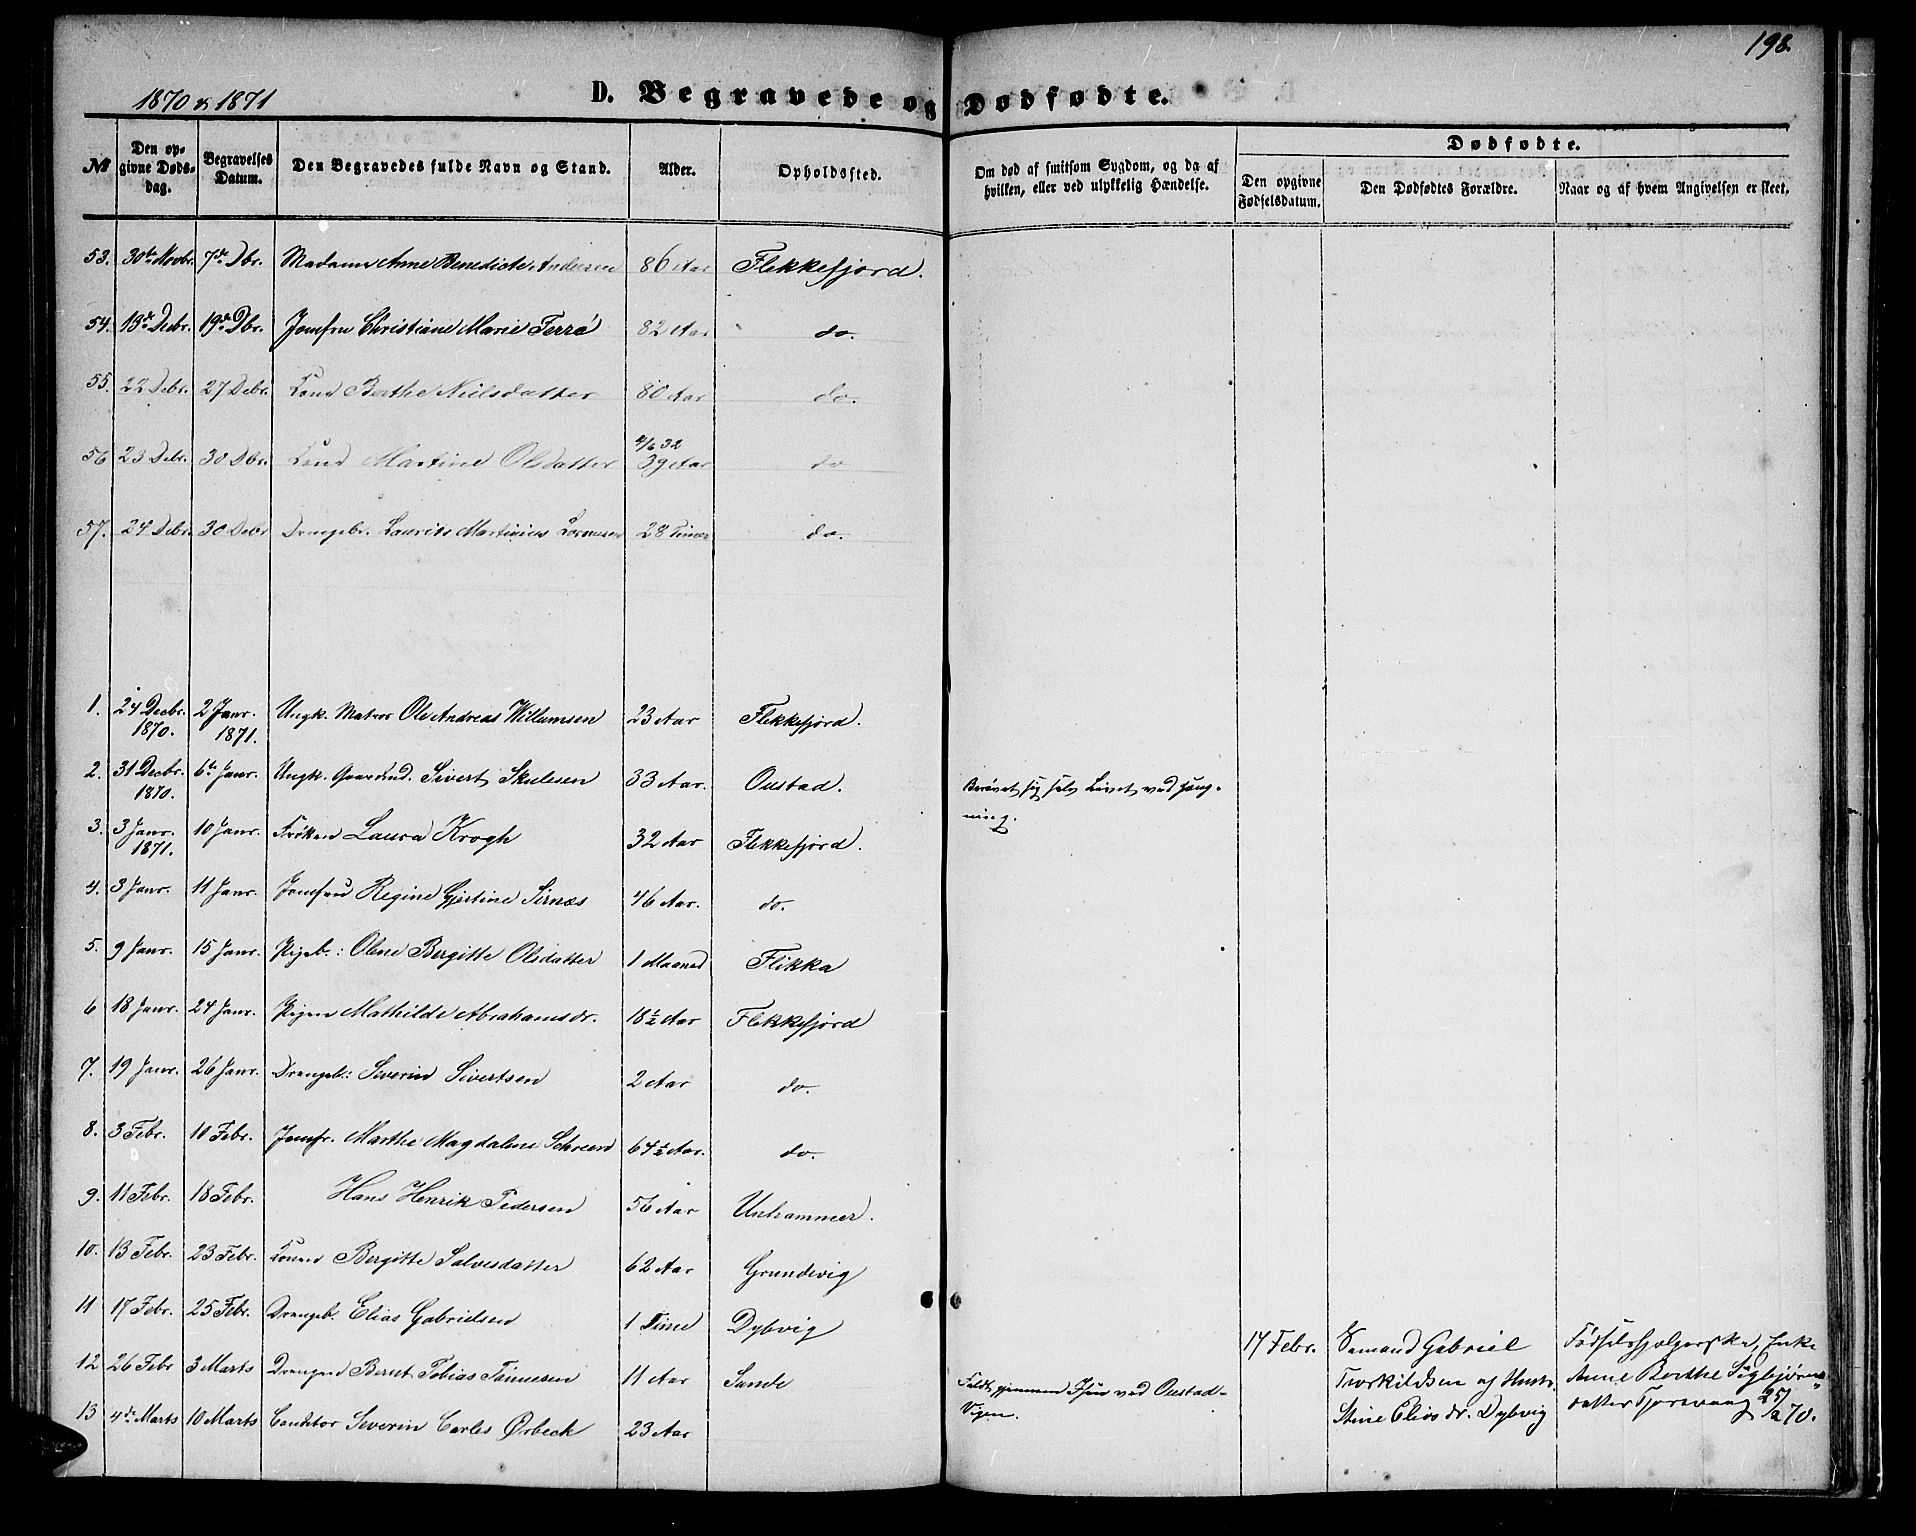 198.
1870 & 1871
D. Begravede og Dødfødte.
№ | Den opgivne Dødsdag. | Begravelses Datum. | Den Begravedes fulde Navn og Stand. | Alder. | Opholdssted. | Om død af smitsom Sygdom, og da af hvilken, eller ved ulykkelig Hændelse. | Dødfødte. | Den opgivne Fødselsdatum. | Den Dødfødtes Forældre. | Naar og af hvem Angivelsen er skeet.
53. 30te Novbr. 7de Dbr. Madame Anne Benedicte Andersen 86 Aar Flekkefjord.
54. 13de Decbr. 19de Dbr. Jomfru Christiane Marie Ferré 82 Aar do.
55. 22 Debr. 27 Debr. Lond Berthe Nielsdatter 80 Aar do.
4/6 32
56 23 Debr. 30 Dbr. Lond Martine Olsdatter 39 Aar do
57. 24 Debr. 30 Debr Drengebr. Laurits Martinius 28 Timer do.
1. 24 Decbr. 1870. 2 Janr. 1871. Ungk. Matros Ole Andreas Willumsen 23 Aar Flekkefjord.
2. 31 Decbr. 1870. 6te Janr. Ungk. Gaardmd. Sivert Skulesen 33 Aar. Oustad. Berøvet sig selv Livet ved Hængning.
3. 3 Janr. 1871. 10 Janr. Frøken Laura Krogh 32 Aar Flekkefjord.
4. 3 Janr. 11 Janr. Jomfru Regine Gjertine Sirnæs 46 Aar. do.
5. 9 Janr. 15 Janr. Pigeb.: Olene Bergitte Olsdatter 1 Maaned Flikka
6 18 Janr. 24 Janr. Pigen Mathilde Abrahamsdr. 18½ Aar Flekkefjord
7. 19 Janr. 26 Janr. Drengeb.: Severin Sivertsen 2 Aar do.
8. 3 Febr. 10 Febr. Jomfr. Marthe Magdalene 64½ Aar. do.
9. 11 Febr. 18 Febr. Hans Henrik Pedersen 56 Aar Unhammer.
10. 13 Febr. 23 Febr. Bergitte Salvesdatter 62 Aar Grundevig
11 17 Febr. 25 Febr. Drengeb. Elias Gabrielsen 1 Time Dybvig
12 26 Febr 3 Marts Drengen Bernt Tobias Tønnesen 11 Aar Sande Faldt gjennem Isen ved Oustad-Vigen.
13 4de Marts 10 Marts Conditor Severin Carles Ørbeck 23 Aar
17 Febr. Samand Gabriel Torkildsen og Hustr. Stine Eliasdr. Dybvig
Fødselshjælperske, Enke Anne Berthe Sigbjørnsdatter Tjorsvaag 25/2 70.